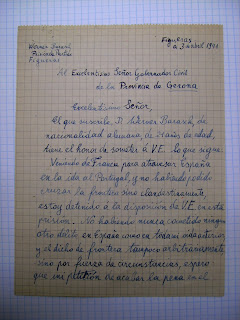 Figueras
a 3 abril 1941
Werner Barasch
Figueras
Al Excelentísimo Señor Gobernador Civil
de la Provincia de Gerona
Excelentísimo Señor,
El que suscribe D. Werner Barasch, de
nacionalidad alemana, de años de edad,
tiene el honor de someter á V.E. lo que sigue.
Veniendo de Francia para atravesar España
en la ida al Portugal, y no habiendo podido
cruzar la frontera sino clandestinamente,
estoy detenido á la disposición de V.E. en esta
prisión. No habiendo nunca cometido ningun
otro delito en España como en toda mi vida anterior,
y el dicho de frontera tampoco arbitrariamente
sino por fuerza de circunstancias, espero
que mi petition de acabar la pena en el